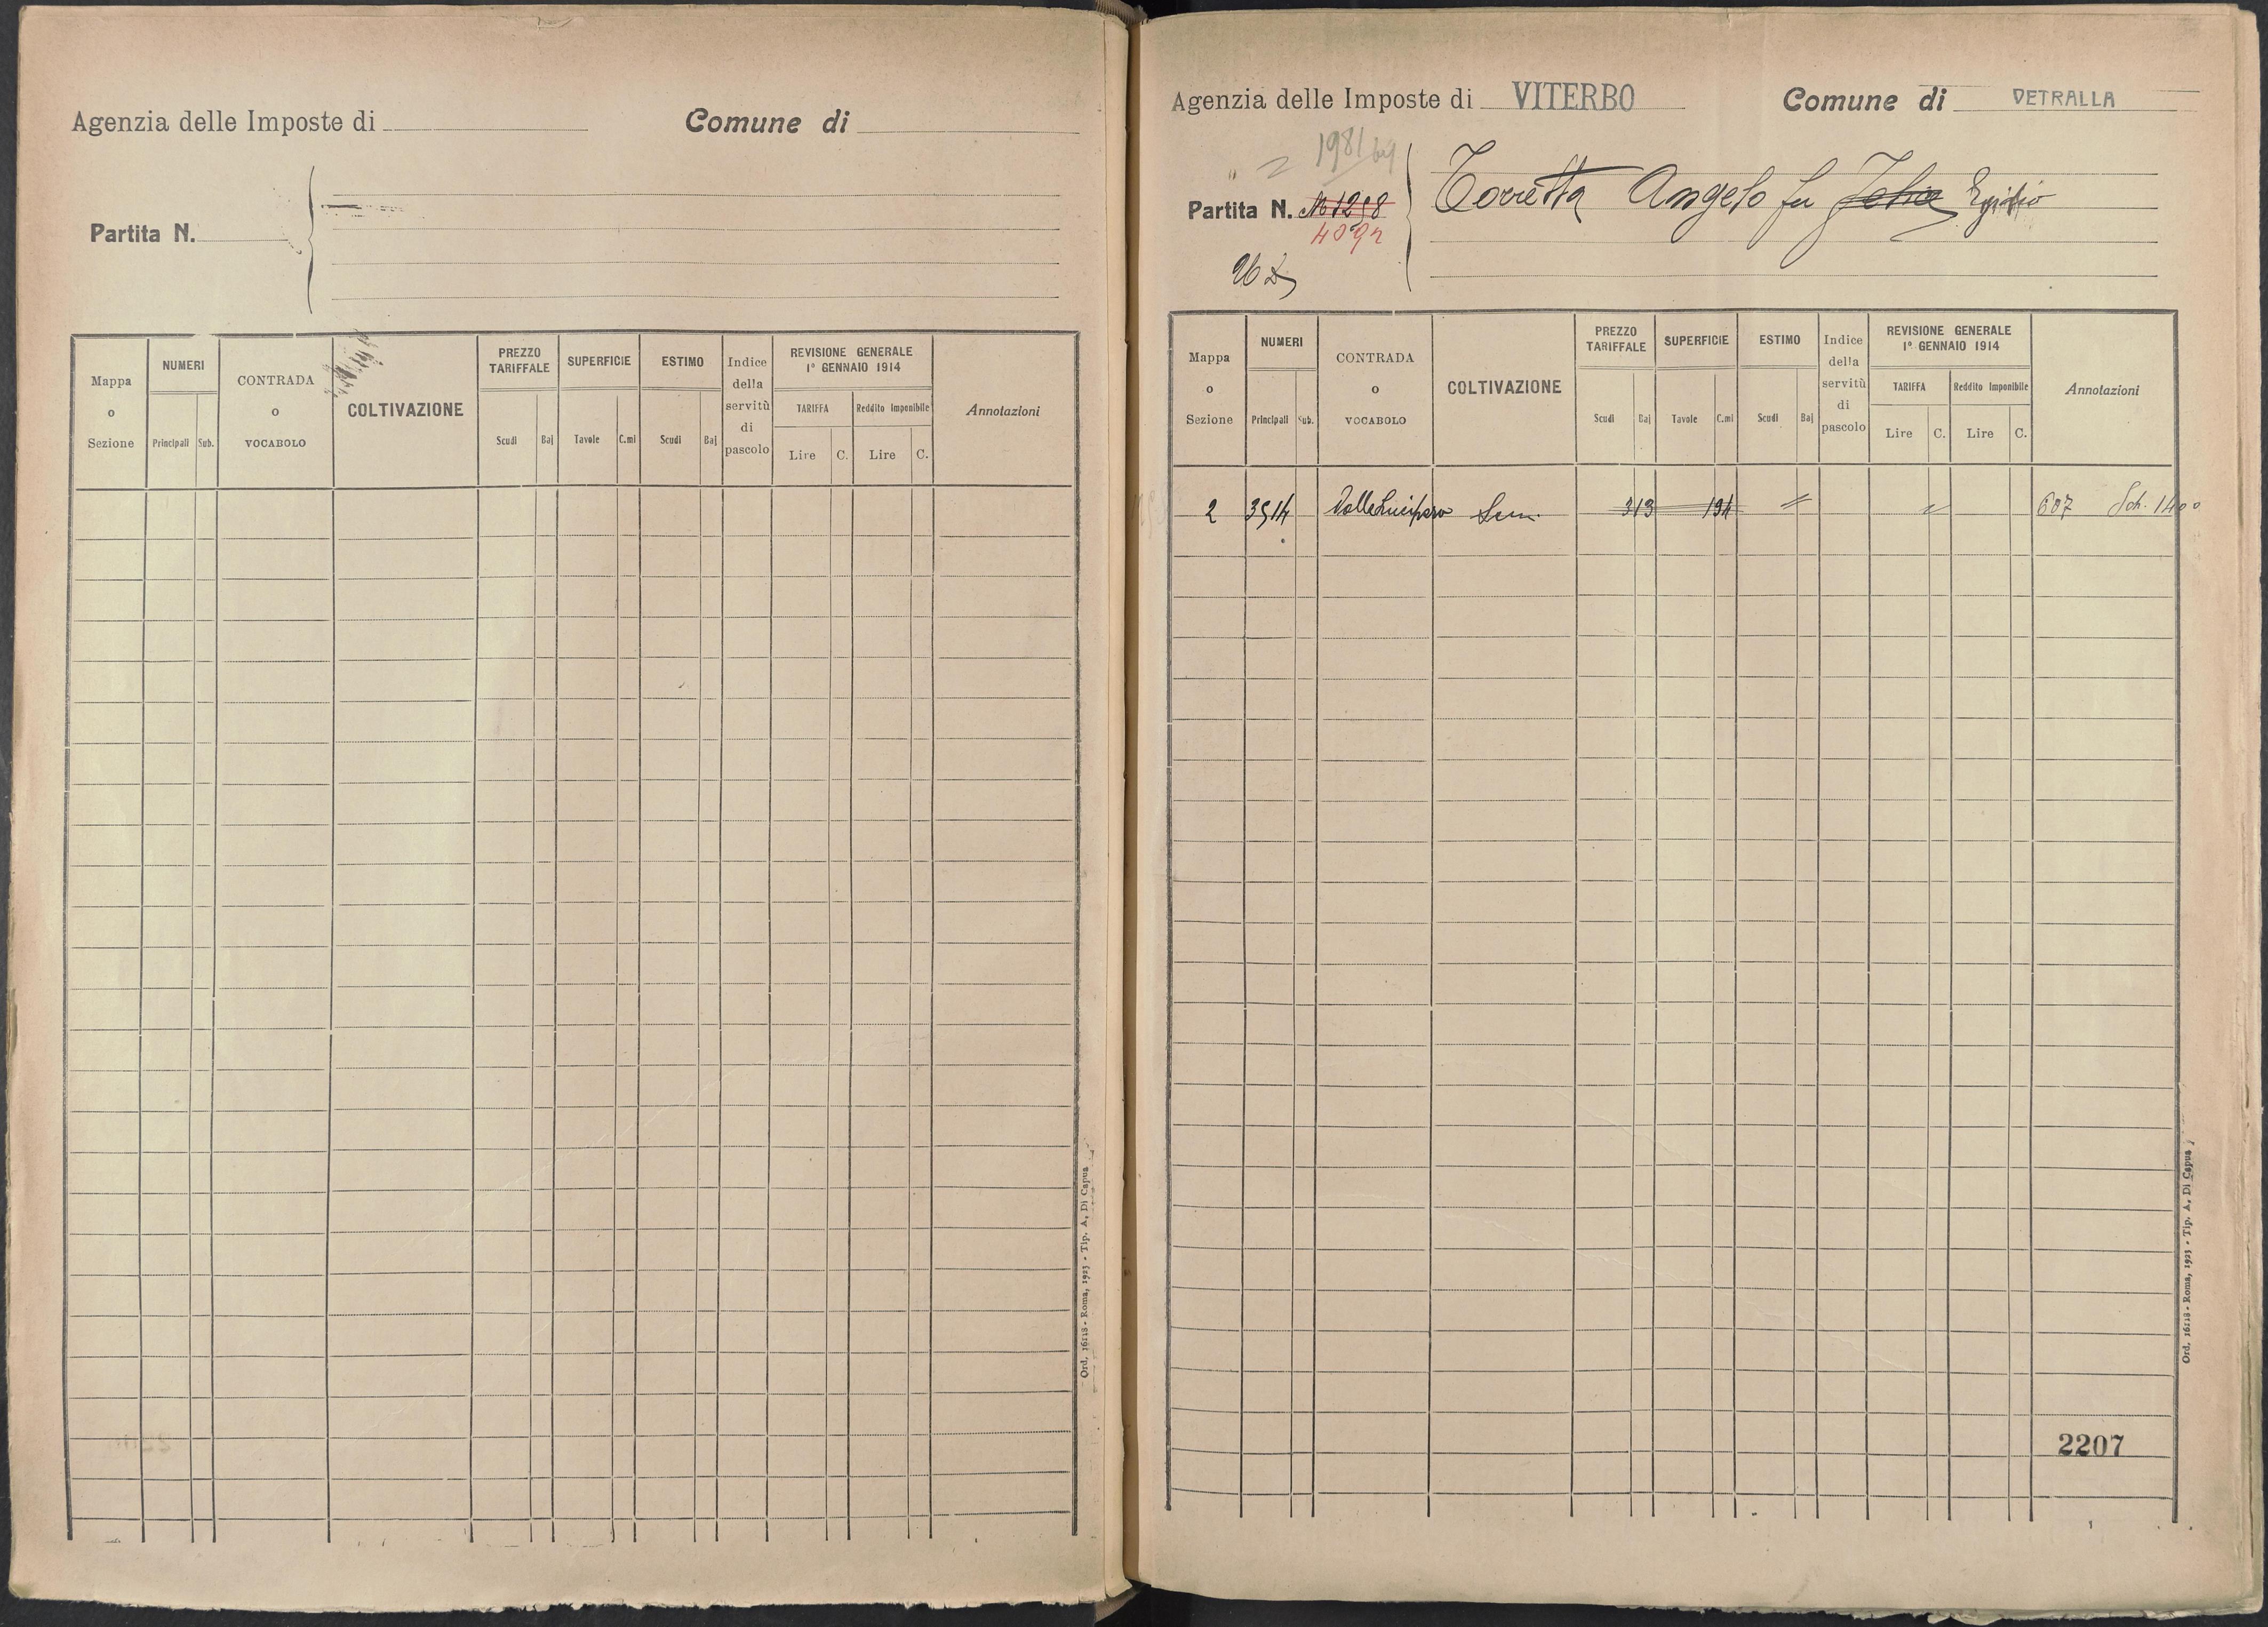 Agenzia delle Imposte di
Comune di
Partita N.
Mappa o Sezione
NUMERI
Principali
Sub.
CONTRADA o VOCABOLO
COLTIVAZIONE
PREZZO TARIFFALE
Scudi
Baj
SUPERFICIE
Tavole
C.mi
ESTIMO
Scudi
Baj
Indice della servitù di pascolo
REVISIONE GENERALE
1° GENNAIO 1914
TARIFFA
Lire
C.
Reddito Imponibile
Lire
C.
Annotazioni
Ord. 16118 - Roma, 1923 - Tip. A. Di Capua
Agenzia delle Imposte di VITERBO
Comune di VETRALLA
1981/64
Partita N.
4092
Torretta Angelo fu Egidio
Mappa o Sezione
NUMERI
Principali
Sub.
CONTRADA o VOCABOLO
COLTIVAZIONE
PREZZO TARIFFALE
Scudi
Baj
SUPERFICIE
Tavole
C.mi
ESTIMO
Scudi
Baj
Indice della servitù di pascolo
REVISIONE GENERALE
1° GENNAIO 1914
TARIFFA
Lire
C.
Reddito Imponibile
Lire
C.
Annotazioni
2 3514 Sem. 313 194 607 Sch. 1400
2207
Ord. 16118 - Roma, 1923 - Tip. A. Di Capua